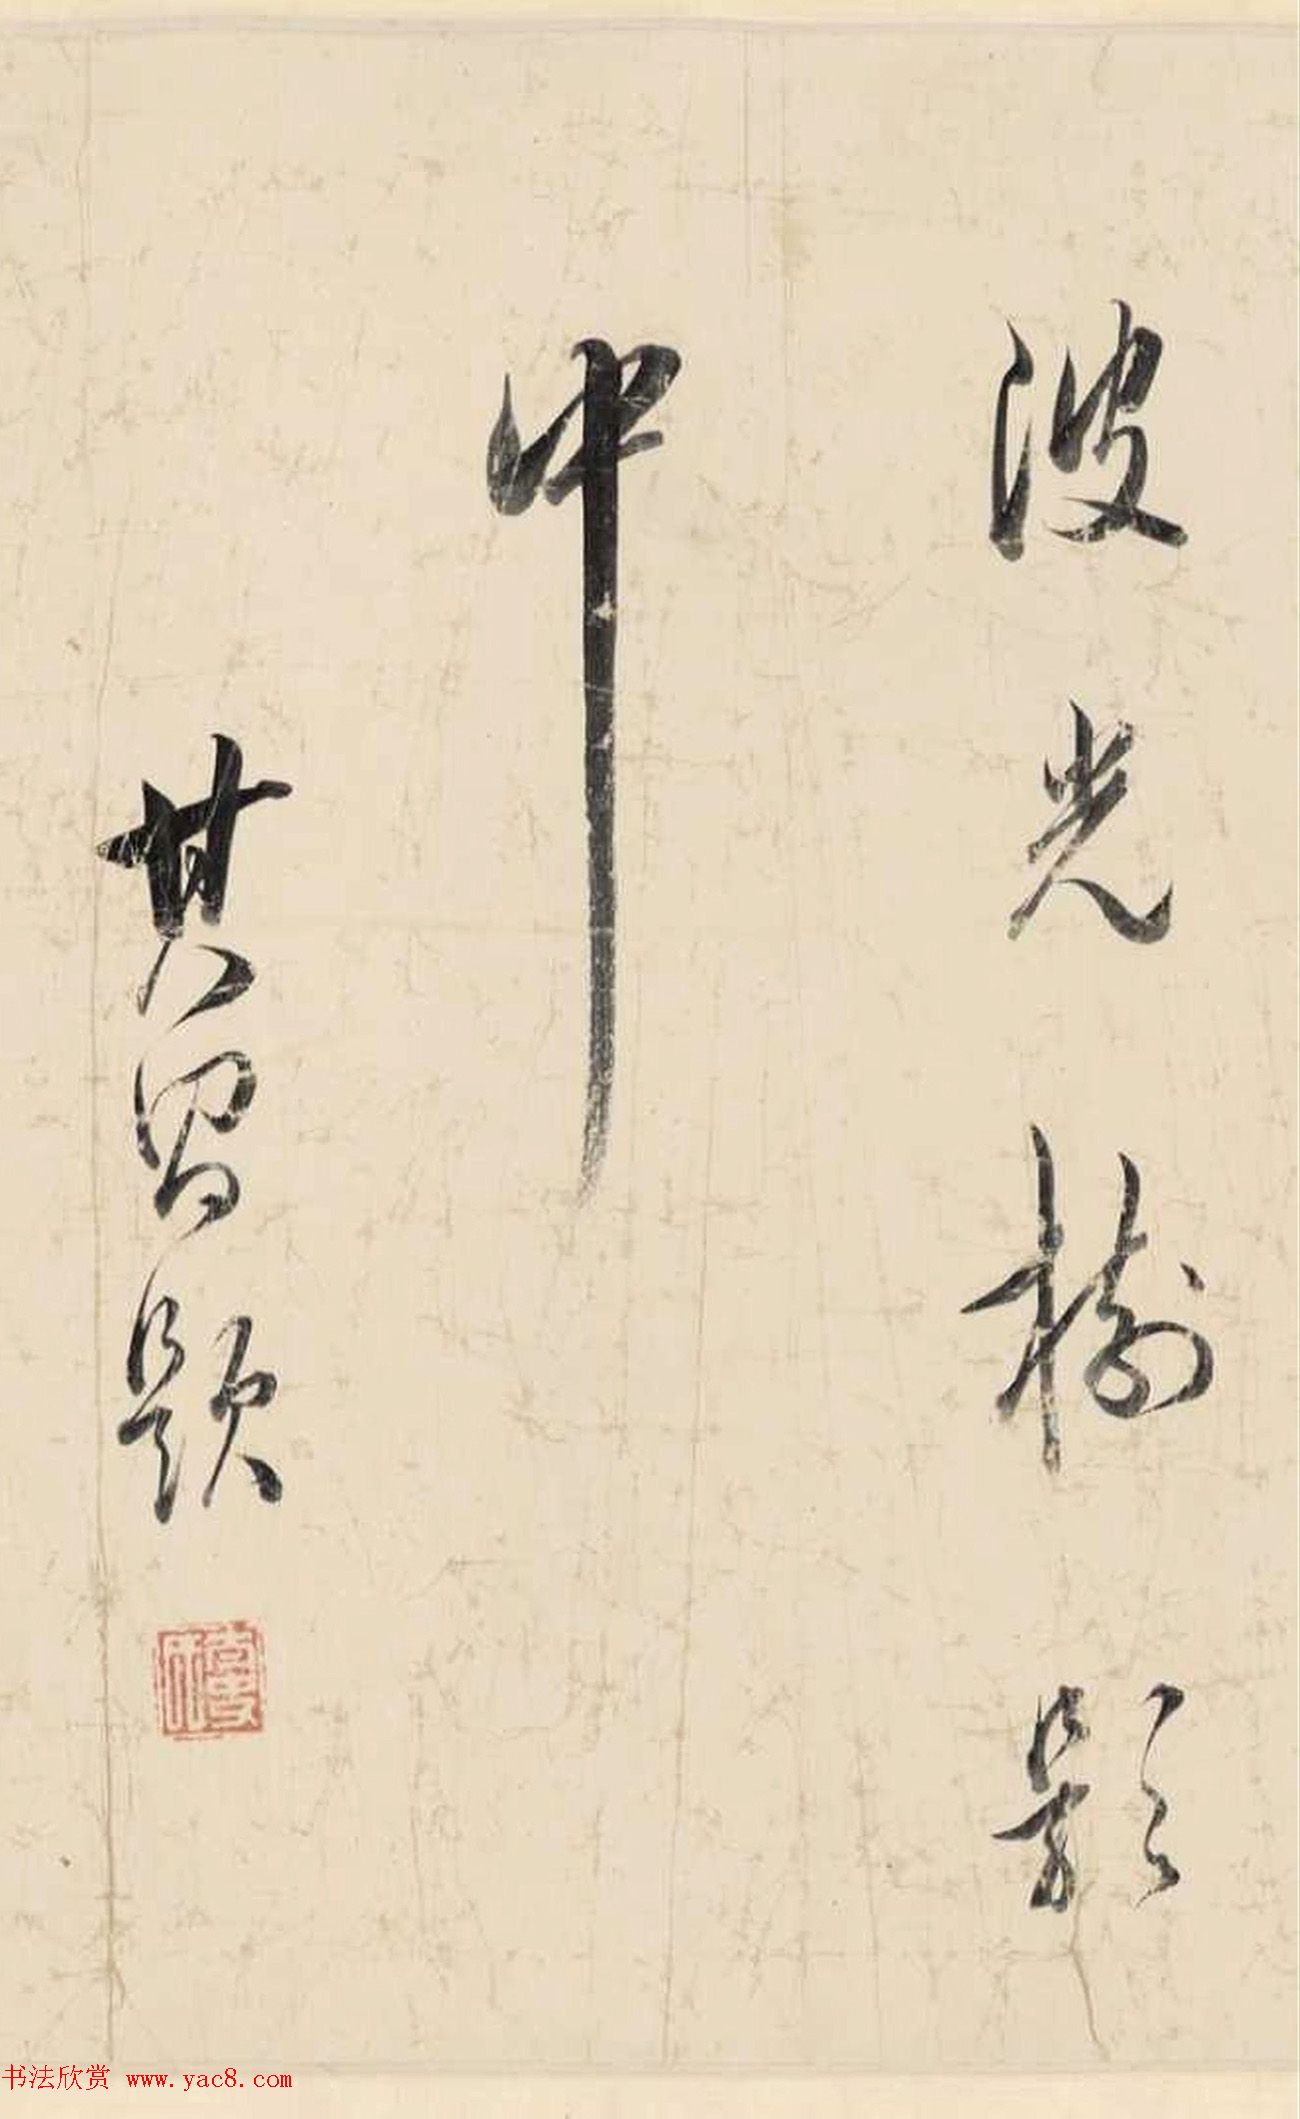 波光樹影
中
其昌題
书法欣赏 www.yac8.com